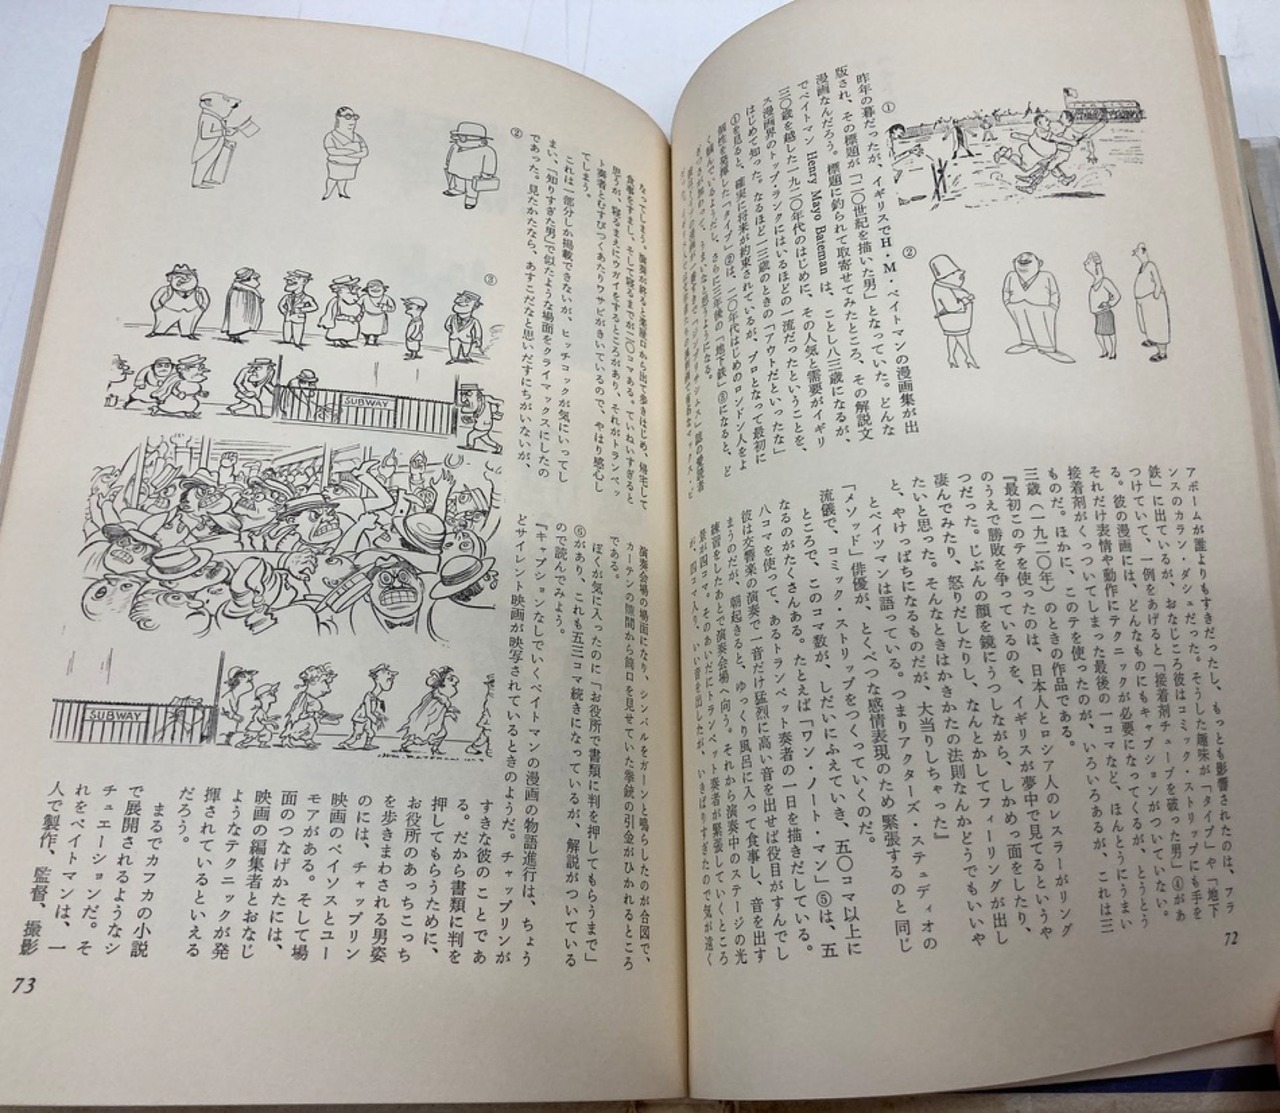 ①
②
昨年の暮だったが、イギリスでH・M・ベイトマンの漫画集が出
版され、その標題が「二〇世紀を描いた男」となっていた。どんな
漫画なんだろう。標題に釣られて取寄せてみたところ、その解説文
でベイトマン Henry Mayo Bateman は、ことし八三歳になるが、
三〇歳を越した一九二〇年代のはじめに、その人気と需要がイギリ
ス漫画界のトップ・ランクにはいるほどの一流だったということを、
はじめて知った。なるほど一三歳のときの「アウトだといったな」
①を見ると、確実に将来が約束されているが、プロとなって最初に
個性を発揮した「タイプ」②は、二〇年代はじめのロンドン人をよ
く掴んでいるようだし、さらに三年後の「地下鉄」③になると、ど
うまいなと思うようになる。
アボームが誰よりもすきだったし、もっとも影響されたのは、フラ
ンスのカラン・ダシュだった。そうした趣味が「タイプ」や「地下
鉄」に出ているが、おなじころ彼はコミック・ストリップにも手を
つけていて、一例をあげると「接着剤チューブを破った男」④があ
る。彼の漫画には、どんなものにもキャプションがついていない。
それだけ表情や動作にテクニックが必要になってくるが、とうとう
接着剤がくっついてしまった最後の一コマなど、ほんとうにうまい
ものだ。ほかに、このテを使ったのが、いろいろあるが、これは三
三歳（一九二〇年）のときの作品である。
『最初このテを使ったのは、日本人とロシア人のレスラーがリング
のうえで勝敗を争っているのを、イギリスが夢中で見てるというや
つだった。じぶんの顔を鏡にうつしながら、しかめっ面をしたり、
凄んでみたり、怒りだしたり、なんとかしてフィーリングが出し
たいと思った。そんなときはかきかたの法則なんかどうでもいいや
と、やけっぱちになるものだが、大当りしちゃった』
とベイツマンは語っている。つまりアクターズ・ステュディオの
「メソッド」俳優が、とくべつな感情表現のため緊張するのと同じ
流儀で、コミック・ストリップをつくっていくのだ。
ところで、このコマ数が、しだいにふえていき、五〇コマ以上に
なるのがたくさんある。たとえば「ワン・ノート・マン」⑤は、五
八コマを使って、あるトランペット奏者の一日を描きだしている。
彼は交響楽の演奏で一音だけ猛烈に高い音を出せば役目がすんでし
まうのだが、朝起きると、ゆっくり風呂に入って食事し、音を出す
練習をしたあとで演奏会場へ向う。それから演奏中のステージの光
景が四コマ。そのあいだにトランペット奏者が緊張していくところ
が、四コマ入り、いい音を出したが、いきばりすぎたので気が遠く
72
なってしまう。演奏が終ると楽屋口から出て歩きはじめ、帰宅して
食事をすまし、そして寝るまでが二〇コマある。ていねいすぎると
思うが、寝るまえにウガイをするところがあり、それがトランペッ
ト奏者とむすびつくあたりワサビがきいているので、やはり感心し
てしまう。
これは一部分しか掲載できないが、ヒッチコックが気にいってし
まい、「知りすぎた男」で似たような場面をクライマックスにしたの
であった。見たかたなら、あすこだなと思いだすにちがいないが、
②
③
SUBWAY
SUBWAY
演奏会場の場面になり、シンバルをガーンと鳴らしたのが合図で、
カーテンの隙間から筒口を見せていた拳銃の引金がひかれるところ
である。
ぼくが気に入ったのに「お役所で書類に判を押してもらうまで」
⑥があり、これも五三コマ続きになっているが、解説がついている
ので読んでみよう。
『キャプションなしでいくベイトマンの漫画の物語進行は、ちょう
どサイレント映画が映写されているときのようだ。チャップリンが
すきな彼のことであ
る。だから書類に判を
押してもらうために、
お役所のあっちこっち
を歩きまわされる男姿
のには、チャップリン
映画のペイソスとユー
モアがある。そして場
面のつなげかたには、
映画の編集者とおなじ
ようなテクニックが発
揮されているといえる
だろう。
まるでカフカの小説
で展開されるようなシ
チュエーションだ。そ
れをベイトマンは、一
人で製作、監督、撮影
73